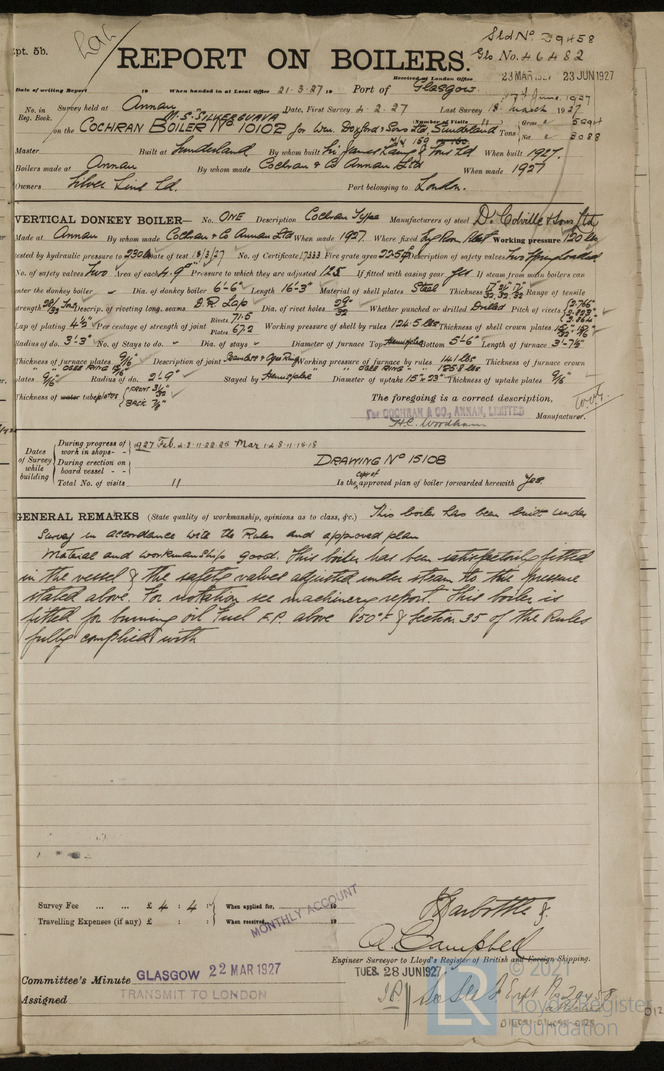 Rpt. 5b.
Sld No. 29458
REPORT ON BOILERS.
Gls No. 46482
Received at London Office
23 MAR 1927 23 JUN 1927
Date of writing Report 19 When handed in at Local Office 21.3.27 19 Port of Glasgow
No. in Survey held at Annan Date, First Survey 4.2.27 Last Survey 18 March 1927
Reg. Book.
on the COCHRAN BOILER No 10102 for Wm. Doxford & Sons Ltd Sunderland
(Number of Visits 11) Tons Gross Net 3088
Master Built at Sunderland By whom built Sir James Laing & Sons Ltd When built 1927.
Boilers made at Annan By whom made Cochran & Co Annan Ltd When made 1927
Owners Silver Line Ld. Port belonging to London.
VERTICAL DONKEY BOILER— No. ONE Description Cochran Type Manufacturers of steel D. Colville & Sons Ltd
Made at Annan By whom made Cochran & Co Annan Ltd When made 1927. Where fixed Working pressure 120 lbs
tested by hydraulic pressure to 230 lbs Date of test No. of Certificate 17333 Fire grate area Description of safety valves Two Spring Loaded
No. of safety valves Two Area of each 4.9" Pressure to which they are adjusted 125 If fitted with easing gear yes If steam from main boilers can
enter the donkey boiler Dia. of donkey boiler 6'-6" Length 16'-3" Material of shell plates Steel Thickness Range of tensile
strength 28/32 Tons Descrip. of riveting long. seams D.R. Lap Dia. of rivet holes 29/32 Whether punched or drilled Drilled Pitch of rivets
Lap of plating Per centage of strength of joint Rivets 71.5 Plates 67.2 Working pressure of shell by rules 124.5 lbs Thickness of shell crown plates
Radius of do. 3'-3" No. of Stays to do. Dia. of stays Diameter of furnace Top Hemisphe Bottom 5'-6" Length of furnace 3'-7½"
Thickness of furnace plates 9/16" Description of joint Working pressure of furnace by rules 141 lbs Thickness of furnace crown
" " OGEE RING " " OGEE RING "
plates 9/16" Radius of do. 2'-9" Stayed by Hemisphere Diameter of uptake Thickness of uptake plates 9/16"
Thickness of water tube plates FRONT BACK 7/8"
The foregoing is a correct description,
For COCHRAN & CO., ANNAN, LIMITED
H.C. Woodham Manufacturer.
Dates of Survey while building
During progress of work in shops- - 1927 Feb.
During erection on board vessel - -
Total No. of visits 11
DRAWING No 15108
Is the copy of approved plan of boiler forwarded herewith Yes.
GENERAL REMARKS (State quality of workmanship, opinions as to class, &c.) This boiler has been built under
Survey in accordance with the Rules and approved plan
Material and workmanship good. This boiler has been satisfactorily fitted
in the vessel & the safety valves adjusted under steam to the pressure
stated above. For notation see machinery report. This boiler is
fitted for burning oil fuel F.P. above 150°F & Section 35 of the Rules
fully complied with
Survey Fee ... ... £ 4 : 4 : When applied for, 19
Travelling Expenses (if any) £ : : When received, 19
MONTHLY ACCOUNT
A. Campbell
Engineer Surveyor to Lloyd's Register of British and Foreign Shipping.
Committee's Minute GLASGOW 22 MAR 1927
TUES. 28 JUN 1927
Assigned TRANSMIT TO LONDON
© 2021
Lloyd's Register
Foundation